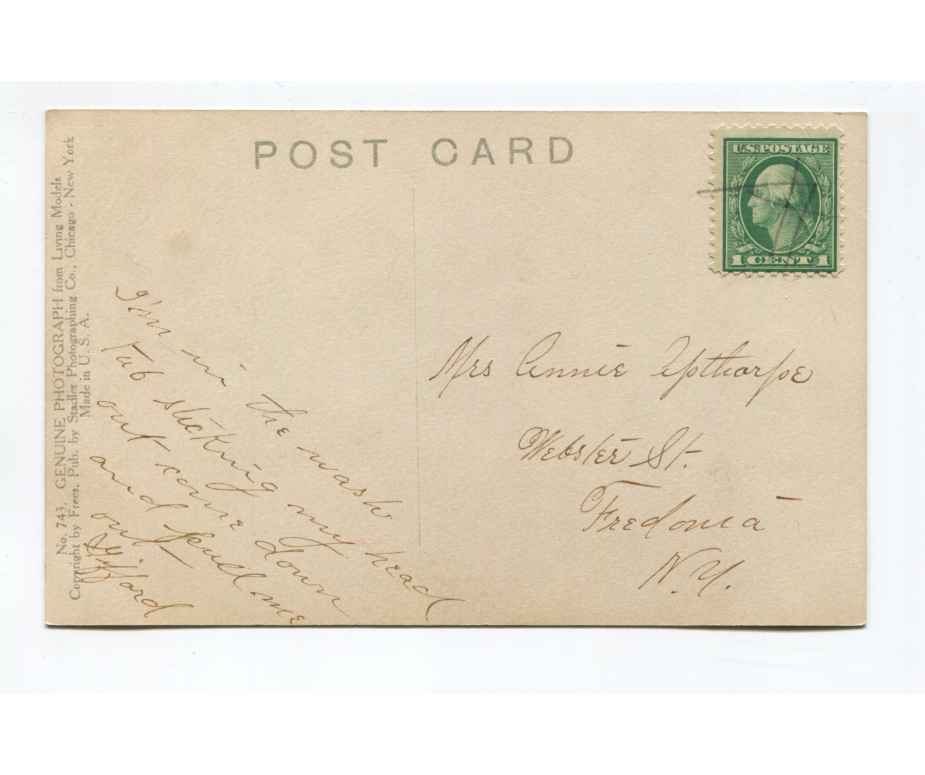 POST CARD
U.S. POSTAGE
1 CENT 1
No. 743. GENUINE PHOTOGRAPH from Living Models
Copyright by Freez, Pub. by Stadler Photographing Co., Chicago - New York
Made in U. S. A.
I'm in the wash
tub sticking my head
out come down
and pull me
out
Gifford
Mrs Annie Apthorpe
Webster St.
Fredonia
N.Y.